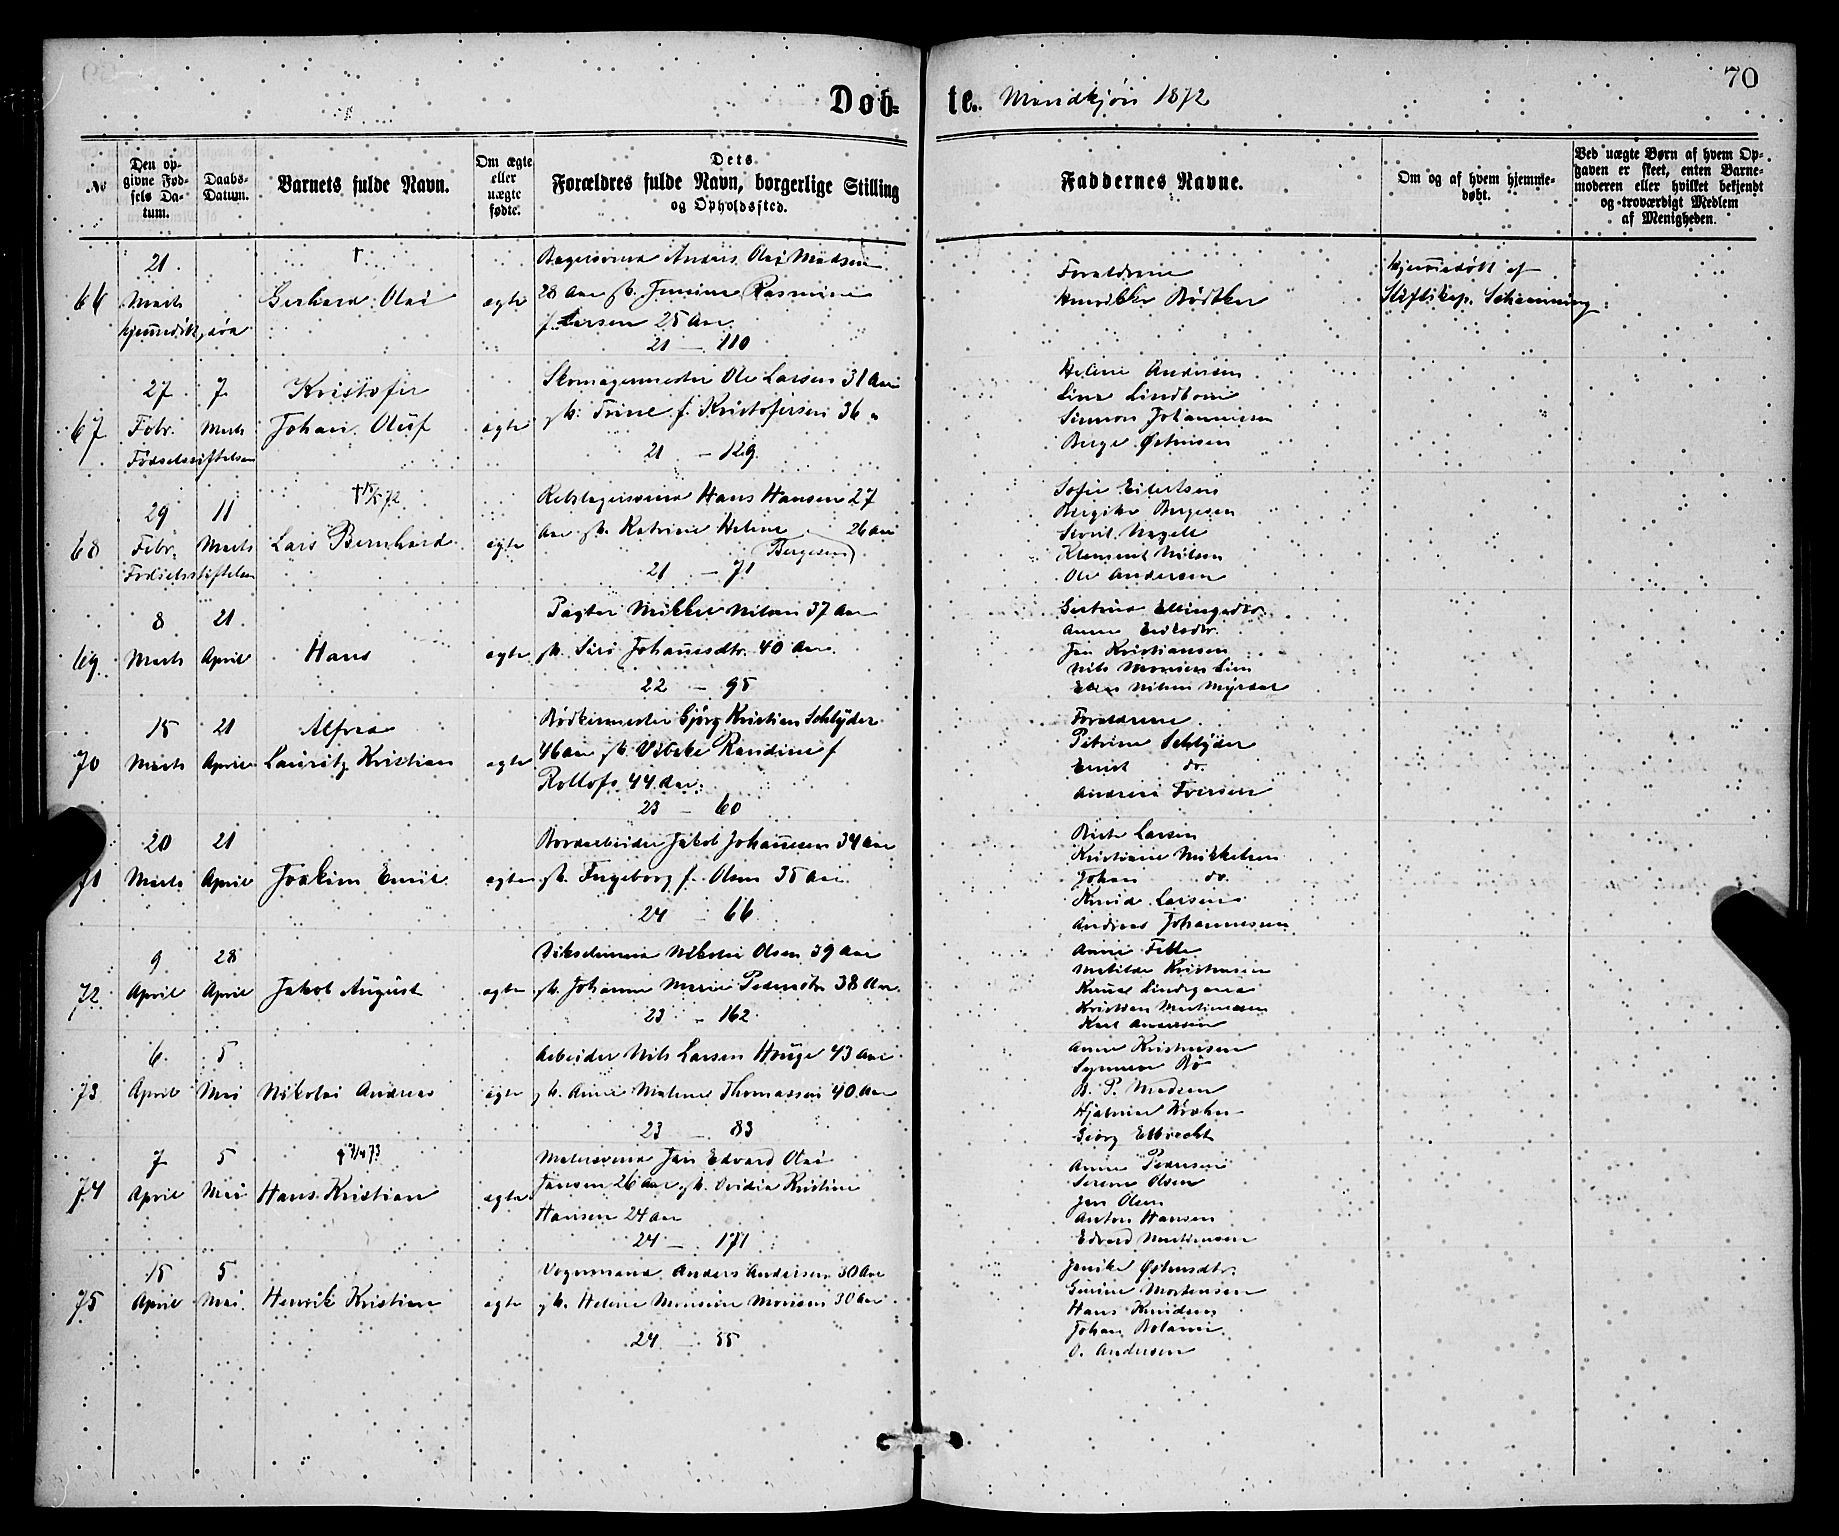 70
Døb- te. Mandkjøn 1872
No
Den opgivne Fødsels Datum.
Daabs-Datum.
Barnets fulde Navn.
Om ægte eller uægte fødte.
Dets Forældres fulde Navn, borgerlige Stilling og Opholdssted.
Faddernes Navne.
Om og af hvem hjemmedøbt.
Ved uægte Børn af hvem Opgaven er skeet, enten Barnemoderen eller hvilket bekjendt og troværdigt Medlem af Menigheden.
66
21
Marts
hjemmedøbt, død
†
Gerhard Olai
ægte
Bagersvend Anders Olai Madsen
28 Aar h. Jensine Rasmine
f. Larsen 25 Aar
21 — 110
Forældrene
Henrikke Bødtker
hjemmedøbt af
Stiftskap.
67
27 7
Febr. Marts
Fødselsstiftelsen
Kristofer
Johan Oluf
ægte
Skomagermester Ole Larsen 31 Aar
h. Trine f. Kristofersen 36 "
21 — 129
Helene Andersen
Line Lindbom
Simon Johannesen
Berge Østensen
68
29 11
Febr. Marts
Fødselsstiftelsen
† 72
Lars Bernhard
ægte
Rebslagersvend Hans Hansen 27
Aar h. Katrine Helene 26 Aar
Bergesen
21 — 71
Sofie Eilertsen
Bergitte Bergesen
Klement Nilsen
Ole Andersen
69
8 21
Marts April
Hans
ægte
Pagter Mikkel Nilsen 37 Aar
h. Siri Johannesdtr. 40 Aar
22 — 95
Gertrud Ellingsdtr.
Anne Eriksdtr.
Jan Kristiansen
Nils Monsen Lien
Nilsen Myrdal
70
15 21
Marts April
Alfred
Lauritz Kristian
ægte
Bødkermester Gjørg Kristian Schlyder
46 Aar h. Vibeke Randine f
Rollofs 44 Aar
23 — 60
Forældrene
Petrine Schlyder
Ernst do.
Andrea Iversen
71
20 21
Marts April
Joakim Emil
ægte
Bordarbeider Jakob Johannesen 34 Aar
h. Ingeborg f. Olsen 35 Aar
24 — 66
Birte Larsen
Kristiane Mikkelsen
Johan do.
Knud Larsen
Andreas Johannessen
72
9 28
April April
Jakob August
ægte
Nikolai Olsen 39 Aar
h. Johanne Marie Pedersdtr 38 Aar
23 — 162
Anne Fette
Matilde Kristensen
Knud Lindegaard
Kristian Martinussen
Karl Andersen
73
6 5
April Mai
Nikolai Andreas
ægte
Arbeider Nils Larsen Hauge 43 Aar
h. Anne Malene Thomassen 40 Aar
23 — 83
Anne Kristensen
Synneve Bø
B. P. Madsen
Georg Elbrecht
74
7 5
April Mai
† 73
Hans Kristian
ægte
Malersvend Jan Edvard Olai
Jansen 26 Aar h. Ovidia Kristine
Hansen 24 Aar
24 — 171
Anne Pedersen
Serene Olsen
Jan Olsen
Anton Hansen
Edvard Martinsen
75
15 5
April Mai
Henrik Kristian
ægte
Vognmand Anders Andersen 30 Aar
h. Helene Monsine Monsen 30 Aar
24 — 55
Janike Østensdtr.
Gurine Mortensen
Hans Knudsen
Johan
O. Andersen